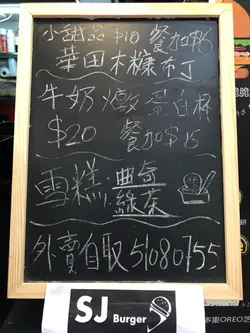 小甜品 $10 餐加$6
華田木糠布丁
牛奶燉蛋白杯
$20 餐加$15
雪糕:曲奇
綠茶
外賣自取 51080755
SJ Burger
多重OREO芝